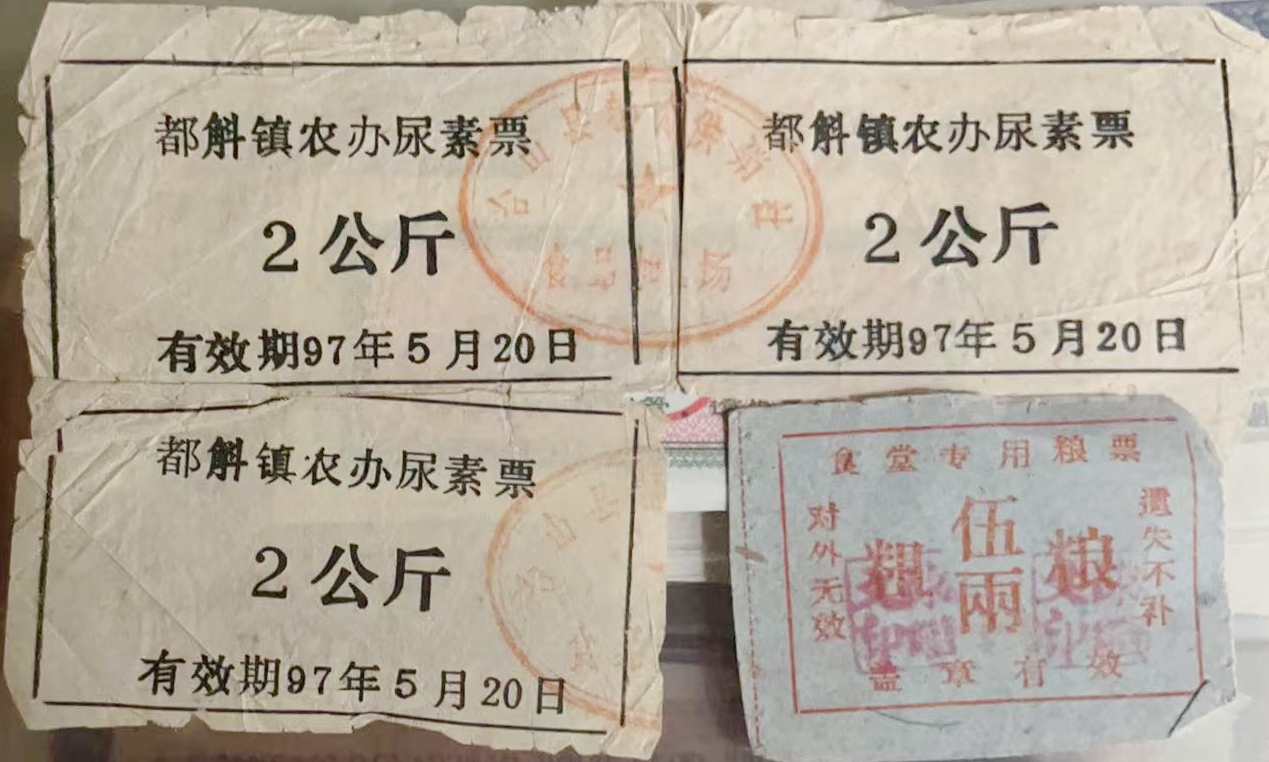 都斛镇农办尿素票
2公斤
有效期97年5月20日
都斛镇农办尿素票
2公斤
有效期97年5月20日
都斛镇农办尿素票
2公斤
有效期97年5月20日
食堂专用粮票
对外无效
粗
伍两
粮
遗失不补
盖章有效